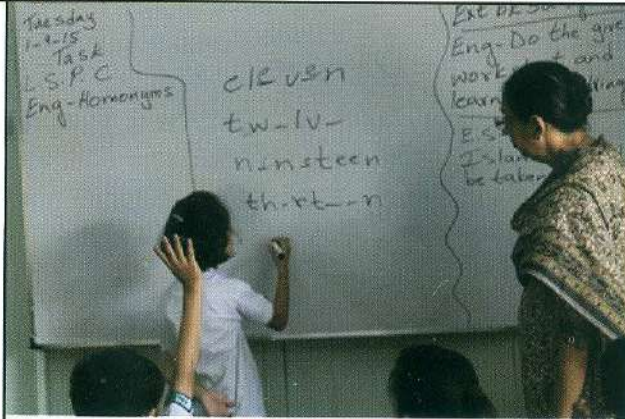 Tuesday
1-9-15
Task
L.S.P.C
Eng-Homonyms
eleven
tw-lv-
n-nsteen
th-rt--n
Eng-Do the give
work and
learn
E.S
Islam
be taken